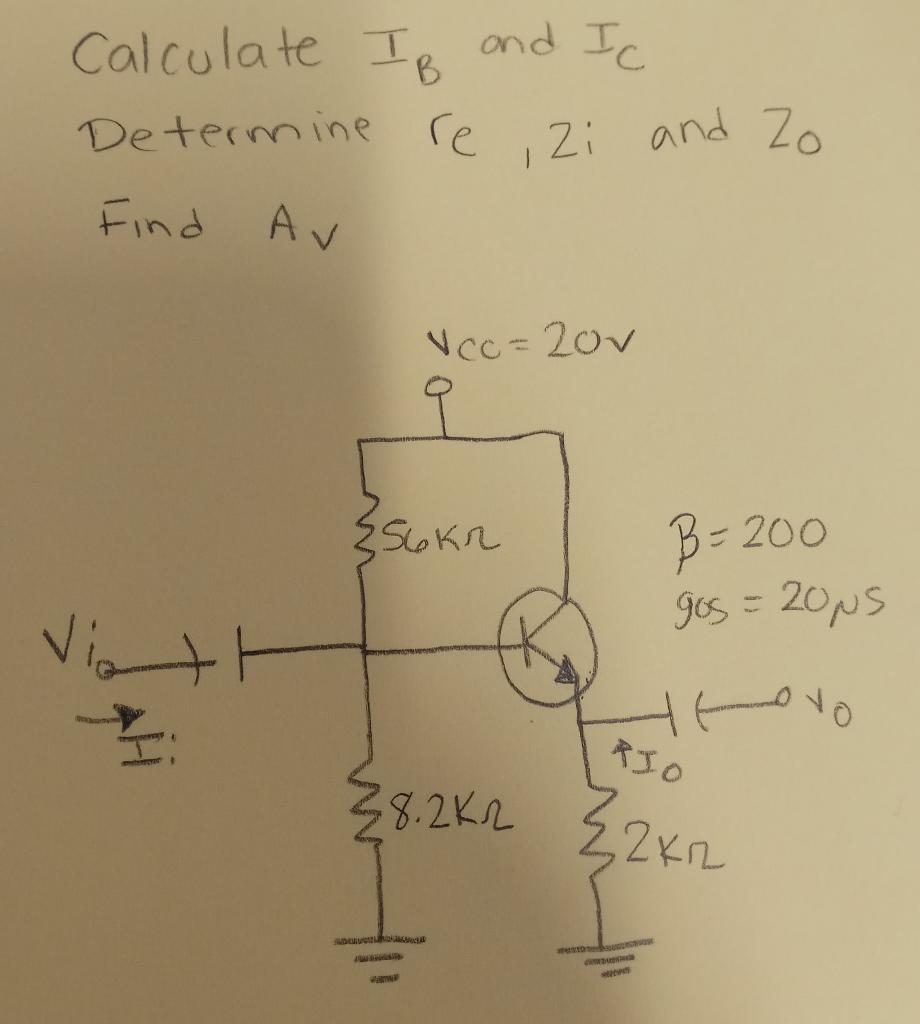 Calculate IB and IC
Determine re, Zi and Zo
Find Av
Vcc = 20v
56KΩ
β = 200
gos = 20μS
Vi
Vo
Ii
Io
8.2KΩ
2KΩ